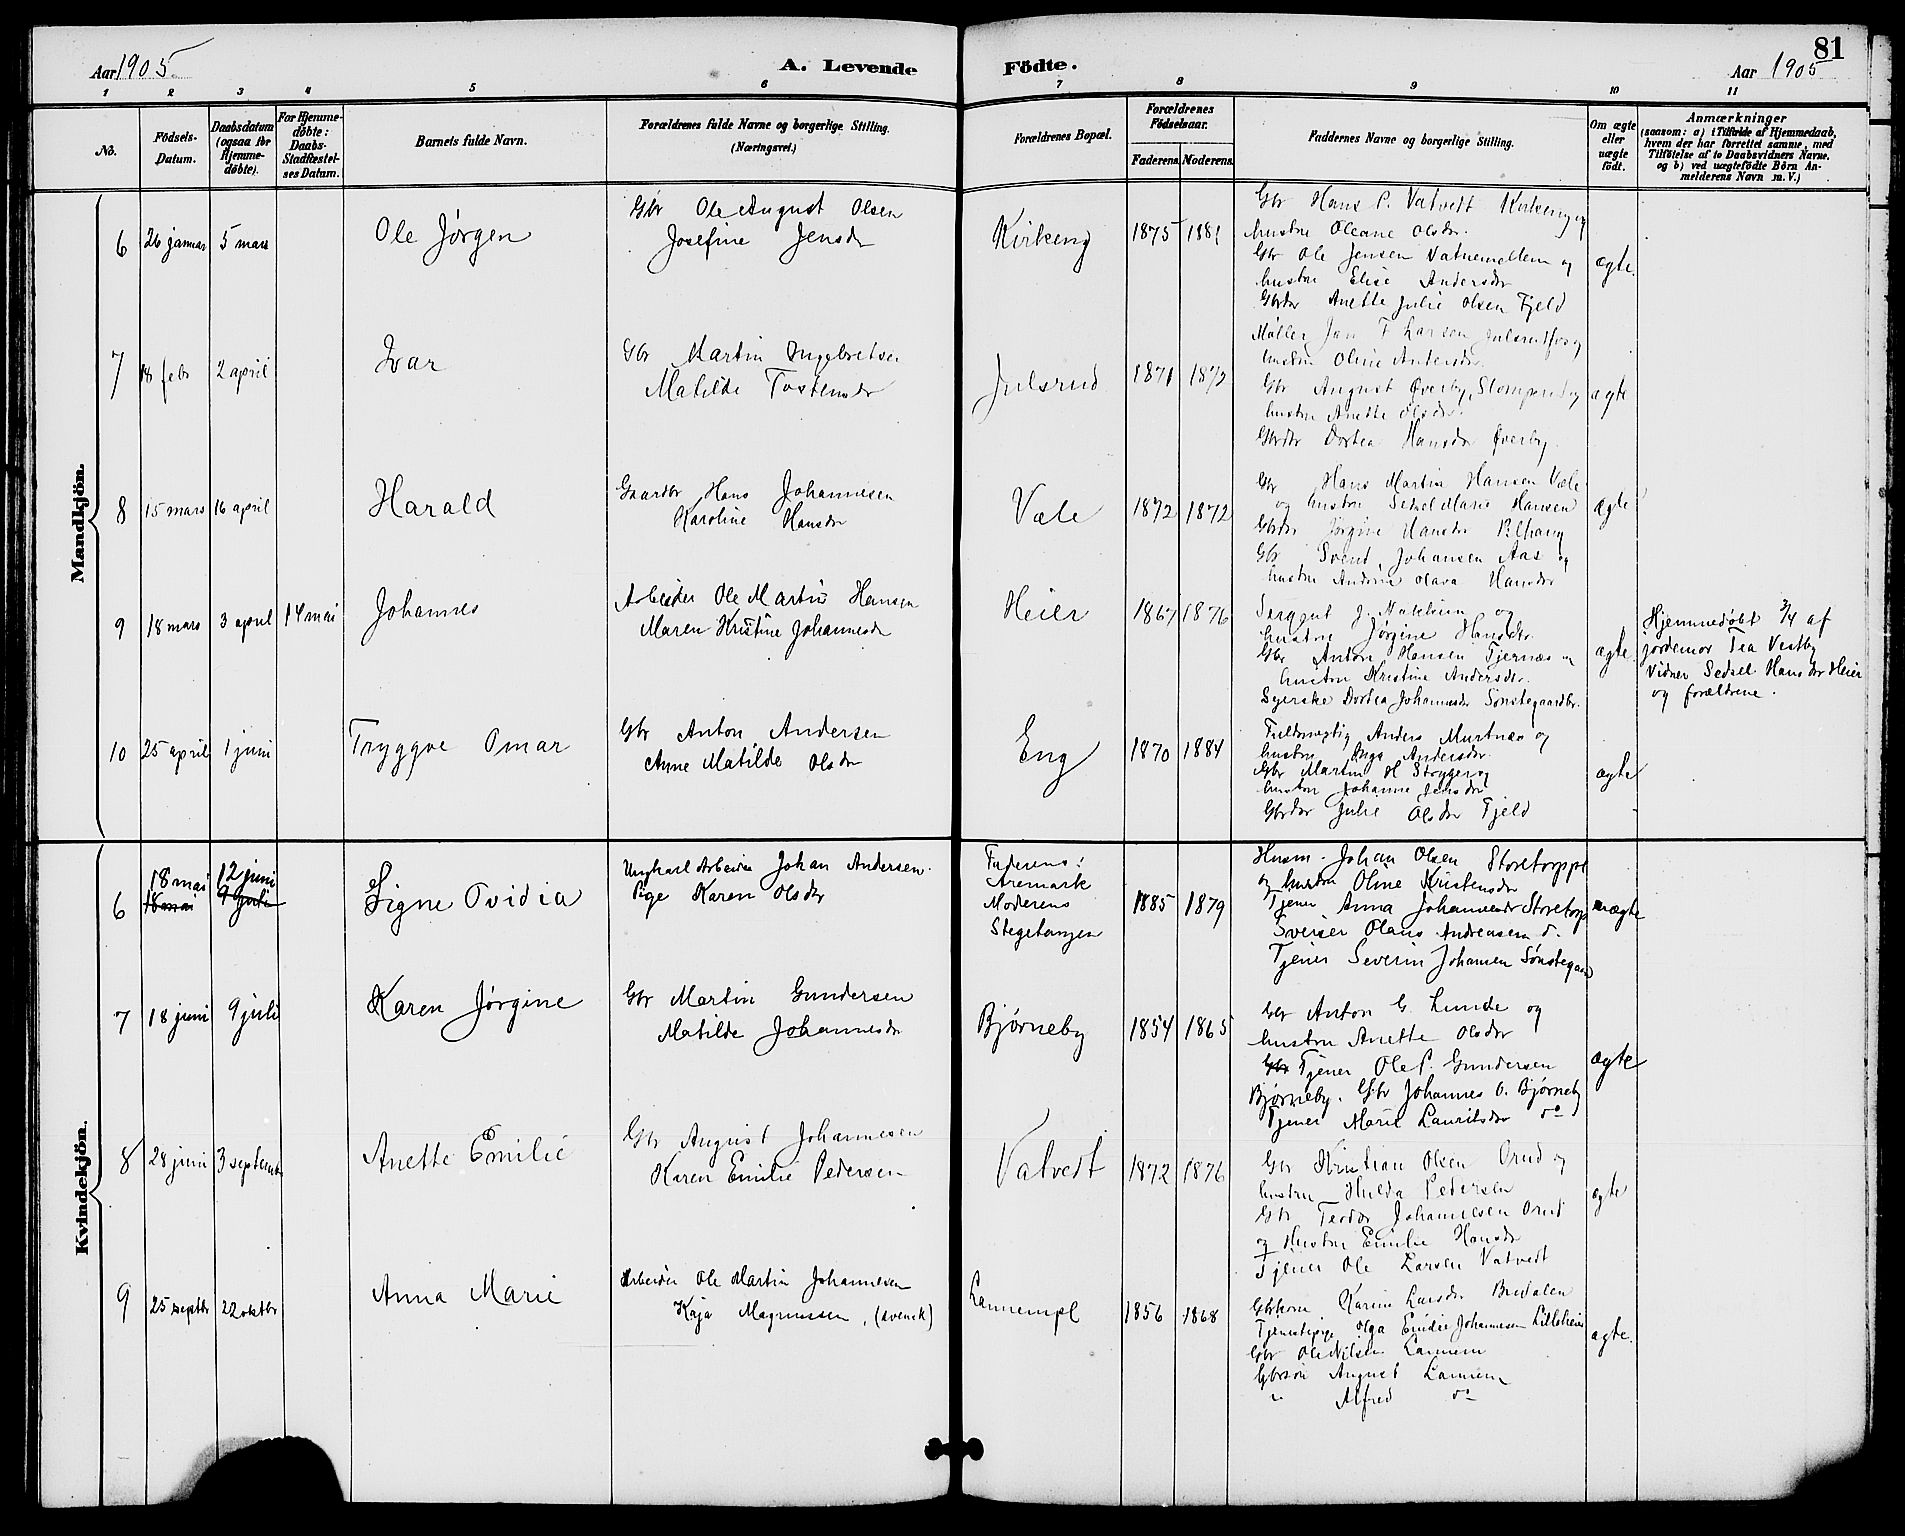 Aar 1905.
A. Levende Födte.
Aar 1905
81
1 2 3 4 5 6 7 8 9 10 11
No.
Födsels-Datum.
Daabsdatum (ogsaa for Hjemme-døbte).
For Hjemme-døbte: Daabs-Stadfæstel-ses Datum.
Barnets fulde Navn.
Forældrenes fulde Navne og borgerlige Stilling. (Næringsvei.)
Forældrenes Bopæl.
Forældrenes Födselsaar.
Faderens. Moderens.
Faddernes Navne og borgerlige Stilling.
Om ægte eller uægte födt.
Anmærkninger
(saasom: a) i Tilfælde af Hjemmedaab, hvem der har forrettet samme, med Tilföielse af to Daabsvidners Navne, og b) ved uægtefödte Börn An-melderens Navn m. V.)
Mandkjön.
6 26 januar 5 mars
Ole Jørgen
Gbr Ole August Olsen
Josefine Jensdr
Kirkeng
1875 1881
Gbr Hans P. Vatvedt Kirkeng og
hustru Oleane Olsdr.
Gbr Ole Jensen Vatnemellem og
hustru Elise Andersdr
Gbrdr Anette Julie Olsen Fjeld
ægte.
7 18 febr 2 april
Ivar
Gbr Martin Ingebretsen
Matilde Tostensdr
Julsrud
1871 1872
Møller Jan F Larsen Julsrudfos og
hustru Oline Andersdr.
Gbr August Øverby, Slomperud og
hustru Anette Olsdr.
Gbrdr Dortea Hansdr Øverby.
ægte
8 15 mars 16 april
Harald
Gaardbr Hans Johannesen
Karoline Hansdr
Vale
1872 1872
Gbr Hans Martin Hansen Vale
og hustru Sedsel Marie Hansen
Gbrdr Jørgine Hansdr
Gbr Svend Johansen Aas og
hustru Andrine Olava Hansdr
ægte
9 18 mars 3 april 14 mai
Johannes
Arbeider Ole Martin Hansen
Maren Kristine Johannesdr
Heier
1867 1876
og
hustru Jørgine Hansdr.
Gbr Anton Hansen Tjernæs og
hustru Kristine Andersdr.
Syerske Dortea Johannesdr Sønstegaardbr.
ægte
Hjemmedøbt 3/4 af
jordemor Tea Vestby
Vidner Sedsel Hansdr Heier
og forældrene.
10 25 april 1 juni
Tryggve Omar
Gbr Anton Andersen
Anne Matilde Olsdr
Eng
1870 1884
Fuldmægtig Anders Mustnæs og
hustru Inga Andersdr.
Gbr Martin H Stryger og
hustru Johanne Jensdr
Gbrdr Julie Olsdr Fjeld
ægte
Kvindekjön.
6 18 mai 12 juni
18 mai 9 juli
Signe Ovidia
Ungkarl Arbeider Johan Andersen.
Pige Karen Olsdr
Faderens:
Aremark
Moderens
Stegetangen
1885 1879
Husm. Johan Olsen Storetorppl
og hustru Oline Kristensdr
Tjener Anna Johannesdr Storetorp
Sveiser Olaus Andreasen do.
Tjener Severin Johansen Sønstegaard
uægte
7 18 juni 9 juli
Karen Jørgine
Gbr Martin Gundersen
Matilde Johannesdr
Bjørneby
1854 1865
Gbr Anton G. Lunde og
hustru Anette Olsdr
Gbr Tjener Ole P. Gundersen
Bjørneby. Gbr Johannes O. Bjørneby
Tjener Marie Lauritsdr do
ægte
8 28 juni 3 septembr
Anette Emilie
Gbr August Johannesen
Karen Emilie Pedersen
Vatvedt
1872 1876
Gbr Kristian Olsen Orud og
hustru Hulda Pedersen
Gbr Teodor Johannesen Orud
og Hustru Emilie Hansdr
Tjener Ole Larsen Vatvedt
ægte
9 25 septbr 22 oktbr
Anna Marie
Arbeider Ole Martin Johannesen
Kaja Magnussen, (svensk)
Lannempl
1856 1868
Gbrkone Karine Larsdr Bredalen
Tjenestepige Olga Emilie Johannesen Lilleheier
Gbr Ole Nilsen Lannem
Gbrsøn August Lannem
" Alfred do
ægte.